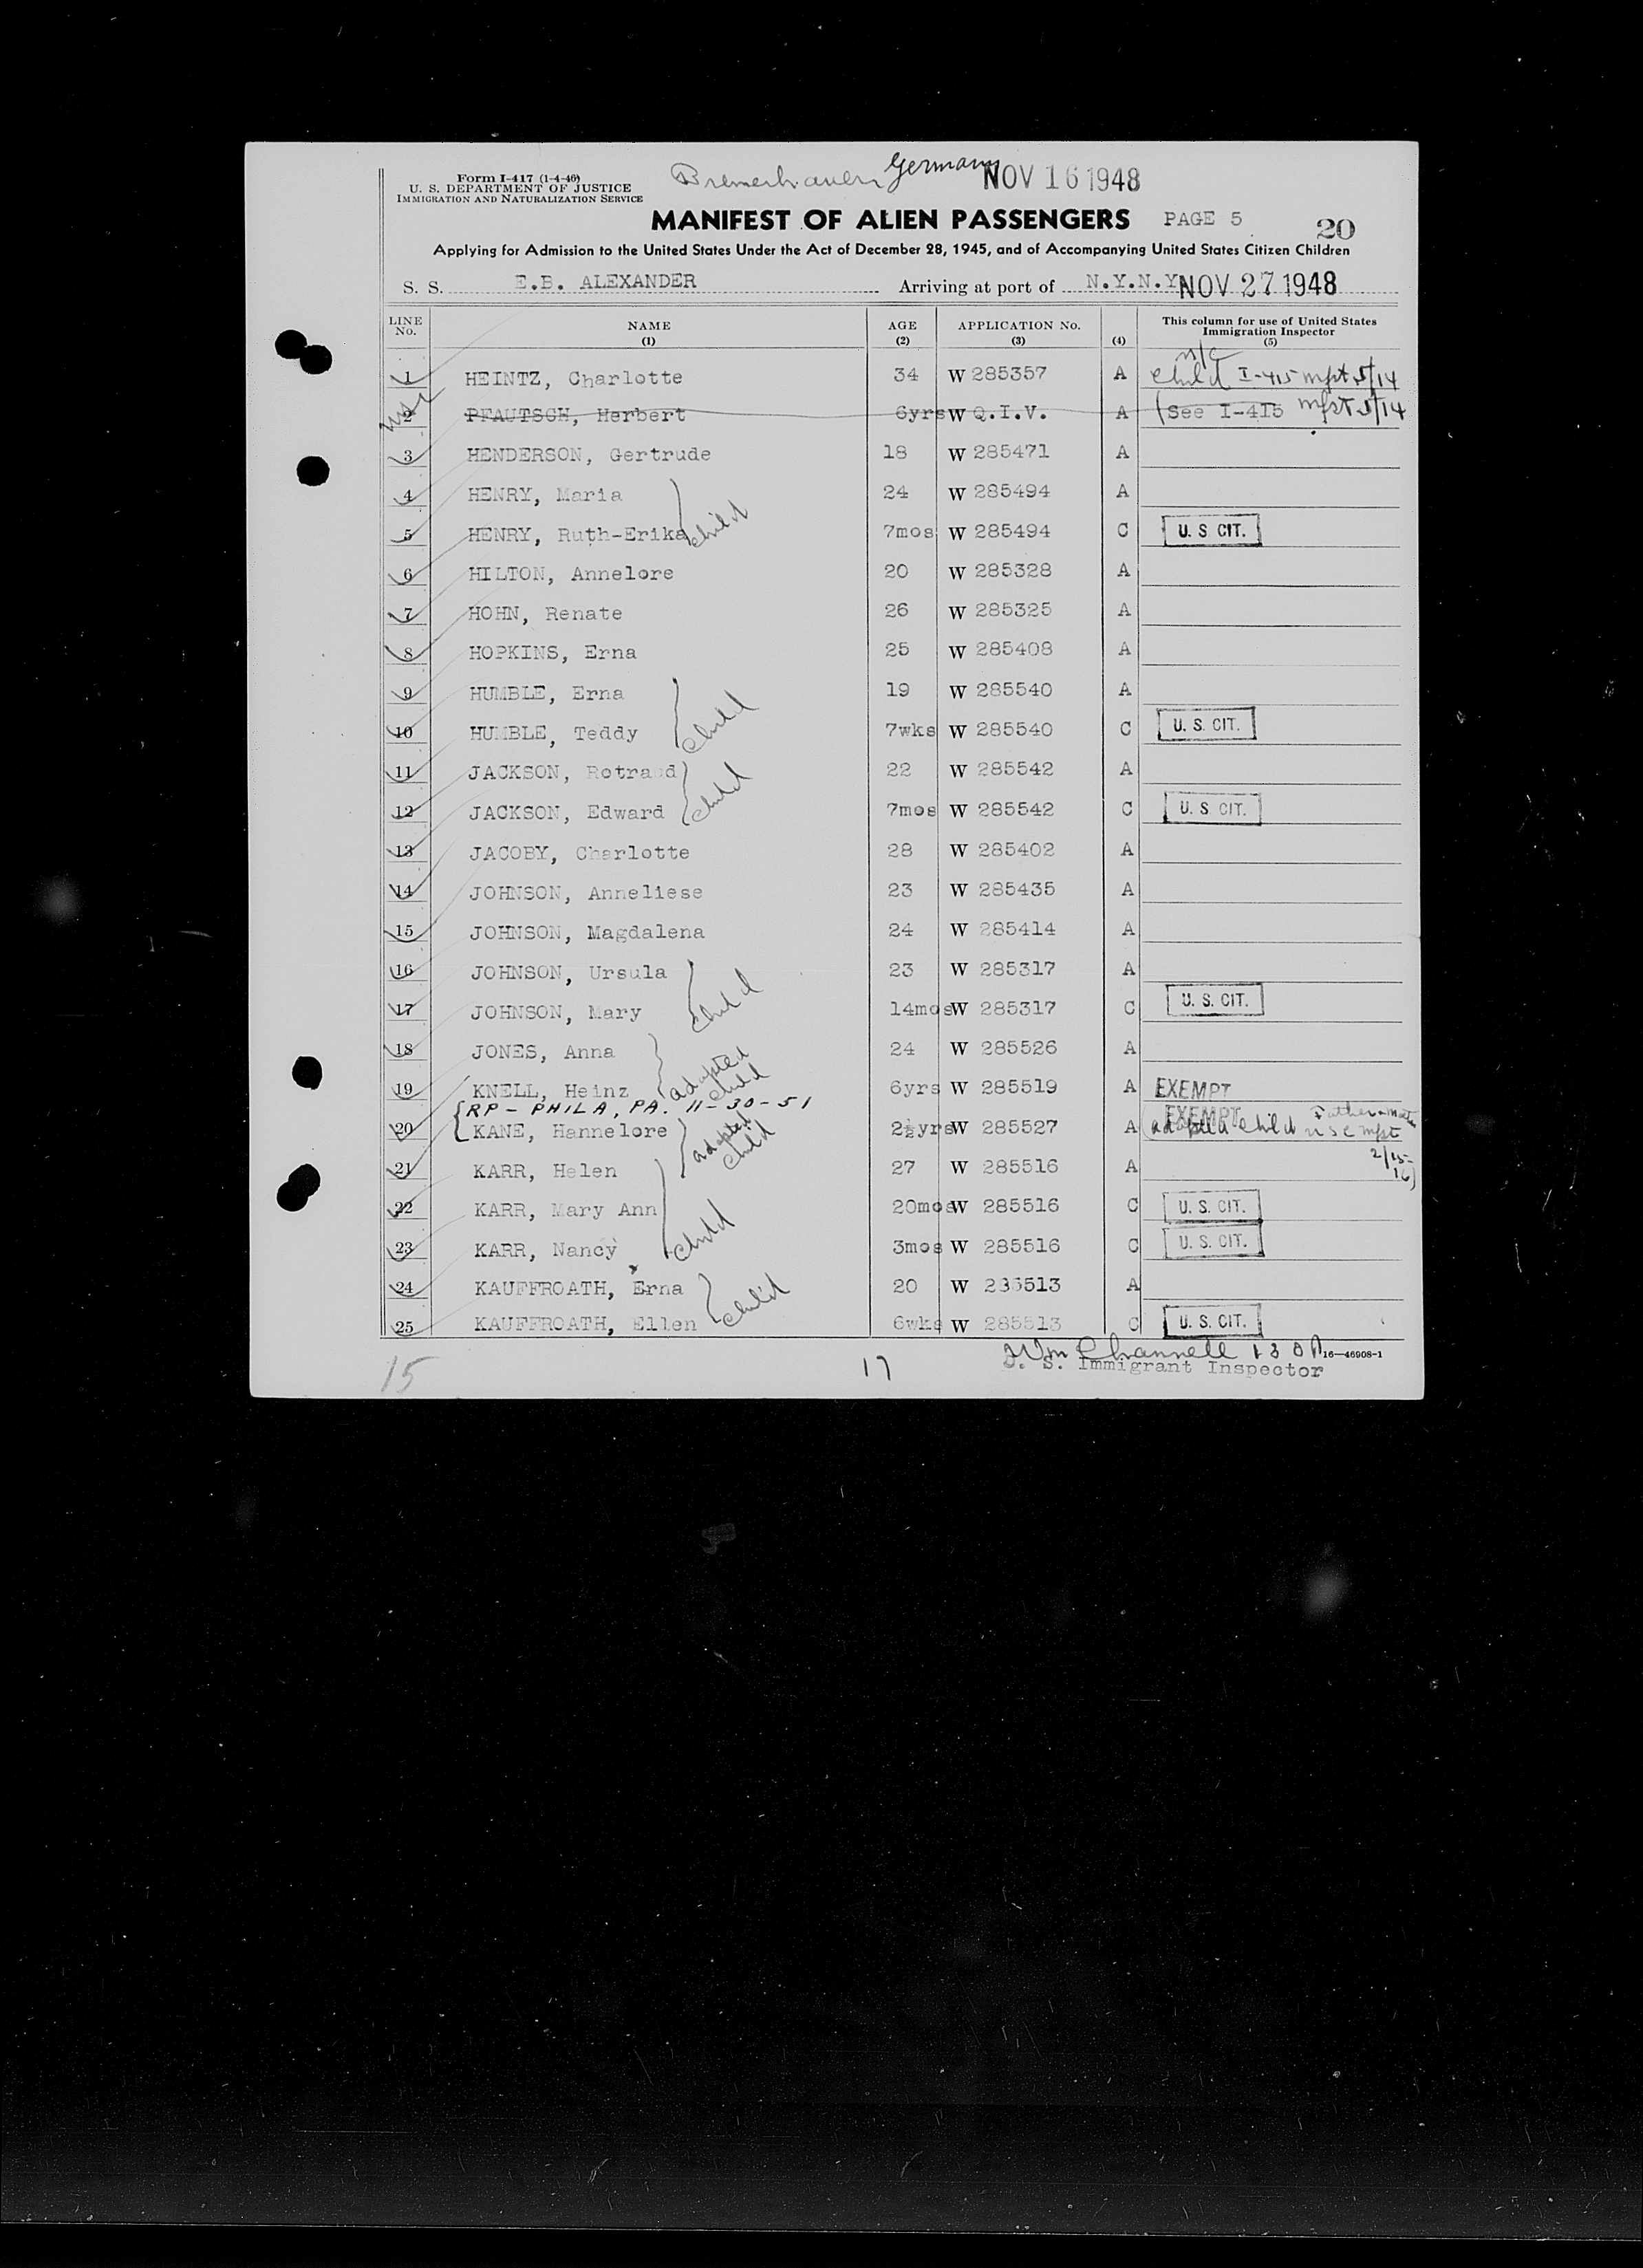 Form I-417 (1-4-46)
U. S. DEPARTMENT OF JUSTICE
IMMIGRATION AND NATURALIZATION SERVICE
Bremerhaven Germany NOV 16 1948
MANIFEST OF ALIEN PASSENGERS PAGE 5 20
Applying for Admission to the United States Under the Act of December 28, 1945, and of Accompanying United States Citizen Children
S. S. E.B. ALEXANDER Arriving at port of N.Y.N.Y. NOV 27 1948
LINE No. NAME (1) AGE (2) APPLICATION No. (3) (4) This column for use of United States Immigration Inspector (5)
n/c
1 HEINTZ, Charlotte 34 W 285357 A child I-415 mfst 5/14
2 PFAUTSCH, Herbert 6yrs W Q.I.V. A (See I-415 mfst 5/14
3 HENDERSON, Gertrude 18 W 285471 A
4 HENRY, Maria 24 W 285494 A
5 HENRY, Ruth-Erika child 7mos W 285494 C U. S. CIT.
6 HILTON, Annelore 20 W 285328 A
7 HOHN, Renate 26 W 285325 A
8 HOPKINS, Erna 25 W 285408 A
9 HUMBLE, Erna 19 W 285540 A
10 HUMBLE, Teddy child 7wks W 285540 C U. S. CIT.
11 JACKSON, Rotraud 22 W 285542 A
12 JACKSON, Edward child 7mos W 285542 C U. S. CIT.
13 JACOBY, Charlotte 28 W 285402 A
14 JOHNSON, Anneliese 23 W 285435 A
15 JOHNSON, Magdalena 24 W 285414 A
16 JOHNSON, Ursula 23 W 285317 A
17 JOHNSON, Mary child 14mos W 285317 C U. S. CIT.
18 JONES, Anna 24 W 285526 A
19 KNELL, Heinz adopted child 6yrs W 285519 A EXEMPT
RP - PHILA, PA. 11-30-51
20 KANE, Hannelore adopted child 2½yrs W 285527 A EXEMPT (adopted child Father & Mother usc mfst 2/15-16)
21 KARR, Helen 27 W 285516 A
22 KARR, Mary Ann 20mos W 285516 C U. S. CIT.
23 KARR, Nancy child 3mos W 285516 C U. S. CIT.
24 KAUFFROATH, Erna 20 W 285513 A
25 KAUFFROATH, Ellen child 6wks W 285513 C U. S. CIT.
Wm Channell 16—46908-1
U. S. Immigrant Inspector
15 17